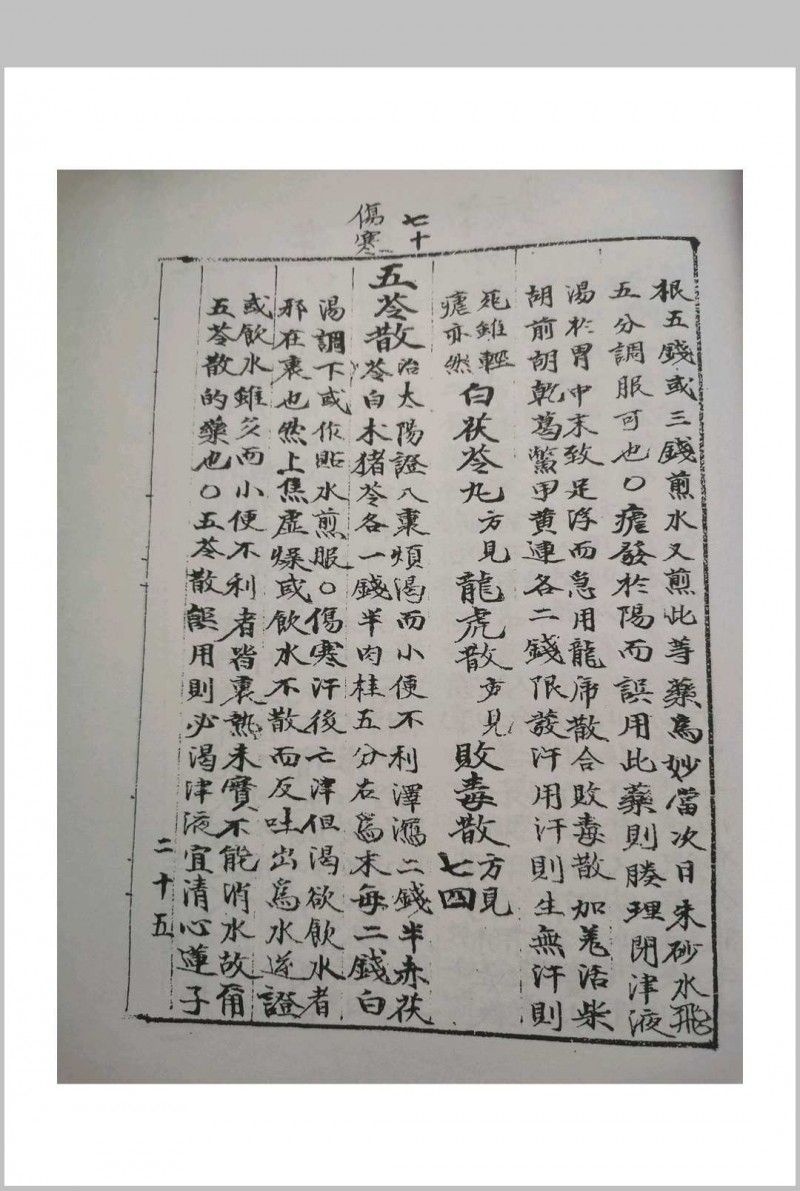 七十
傷寒
根五錢或三錢煎水又煎此等藥爲妙當次日朱砂水飛
五分調服可也〇瘧發於陽而誤用此藥則腠理閉津液
湯於胃中末致足浮而急用龍虎散合敗毒散加羌活柴
胡前胡乾葛鱉甲黄連各二錢限發汗用汗則生無汗則
死雖輕
瘧亦然 白茯苓丸方見 龍虎散方見 敗毒散方見
七四
五苓散治太陽證入裏煩渴而小便不利澤瀉二錢半赤茯
苓白木猪苓各一錢半肉桂五分右爲末每二錢白
湯調下或作貼水煎服〇傷寒汗後亡津但渴欲飲水者
邪在裏也然上焦虛燥或飲水不散而反吐出爲水逆證
或飲水雖多而小便不利者皆裏熱未實不能消水故用
五苓散的藥也〇五苓散誤用則必渴津液宜清心蓮子
二十五